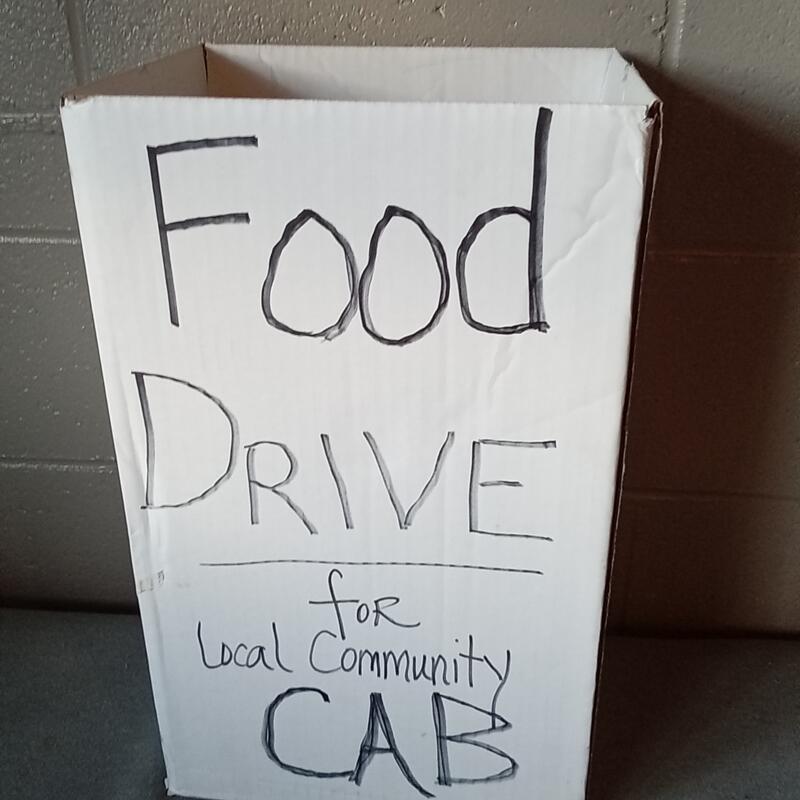 Food
DRIVE
for
Local Community
CAB